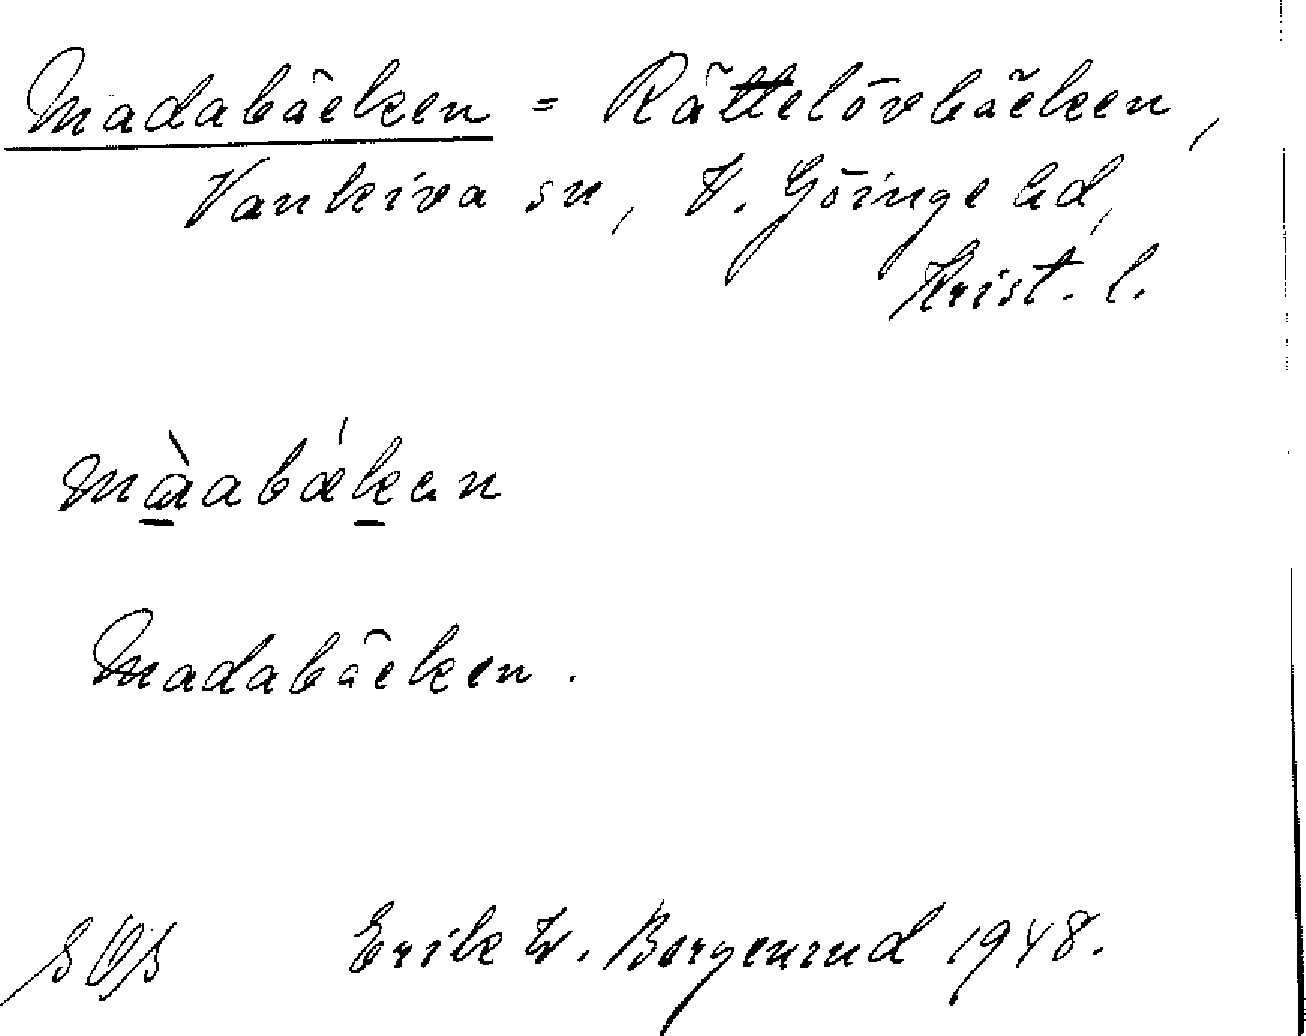 Madabäcken = Rättelövbäcken,
Vankiva sn, V. Göinge hd,
Krist. l.
Madabäcken.
Erik W. Borgenrud 1948.